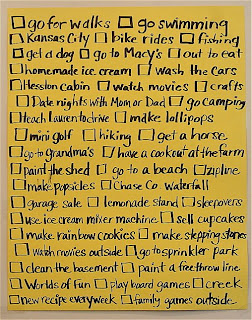 go for walks go swimming
Kansas City bike rides fishing
get a dog go to Macy's out to eat
homemade ice cream wash the cars
Hesston cabin watch movies crafts
Date nights with Mom or Dad go camping
teach Lauren to drive make lollipops
mini golf hiking get a horse
go to grandma's have a cookout at the farm
paint the shed go to a beach zipline
make popsicles Chase Co. waterfall
garage sale lemonade stand sleepovers
use ice cream mixer machine sell cupcakes
make rainbow cookies make stepping stones
watch movies outside go to sprinkler park
clean the basement paint a free throw line
Worlds of Fun play board games creek
new recipe every week family games outside